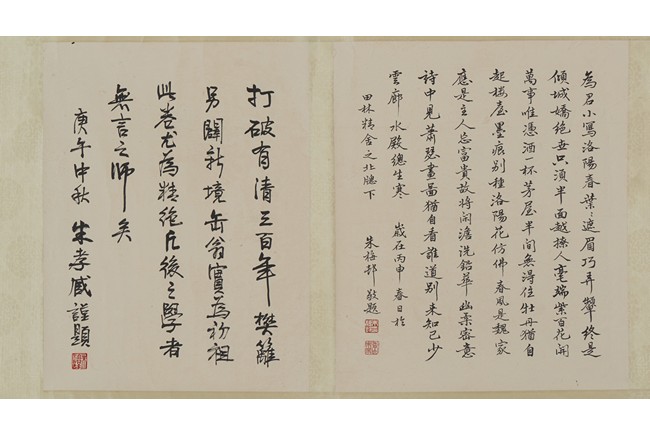 為君小寫洛陽春葉々遮眉巧弄顰終是
傾城嬌絕世只須半面越撩人毫端紫百花開
萬事唯憑酒一杯茅屋半間無得住牡丹猶自
起樓臺墨痕別種洛陽花仿佛春風是魏家
應是主人忘富貴故將閒澹洗鉛華幽柔審意
詩中見蕭瑟畫圖猶自看誰道別來知己少
雲廊水殿總生寒 歲在丙申春日於
田林精舍之北牕下
朱梅邨敬題
打破有清三百年樊籬
另闢新境缶翁實為初祖
此卷尤為精絕後之學者
無言之師矣
庚午中秋 朱孝臧謹題